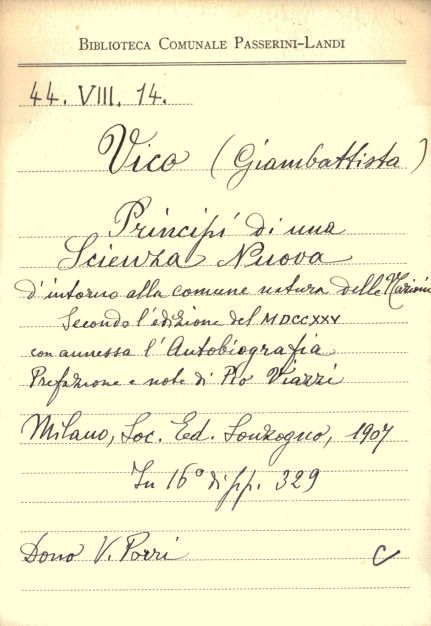 BIBLIOTECA COMUNALE PASSERINI-LANDI
44. VIII. 14.
Vico (Giambattista)
Principî di una
Scienza Nuova
d'intorno alla comune natura delle Nazioni
Secondo l'edizione del MDCCXXV
con annessa l'Autobiografia
Prefazione e note di Pio Viazzi
Milano, Soc. Ed. Sonzogno, 1907
In 16° di pp. 329
Dono V. Porri
C